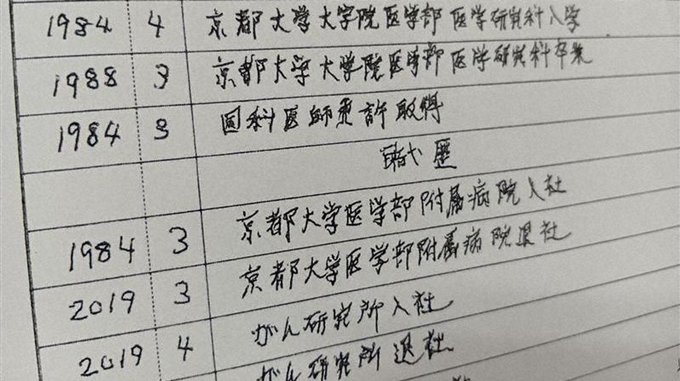 1984 4 京都大学大学院医学部医学研究科入学
1988 3 京都大学大学院医学部医学研究科卒業
1984 3 国科医師免許取得
職歴
1984 3 京都大学医学部附属病院入社
2019 3 京都大学医学部附属病院退社
2019 4 がん研究所入社
がん研究所退社